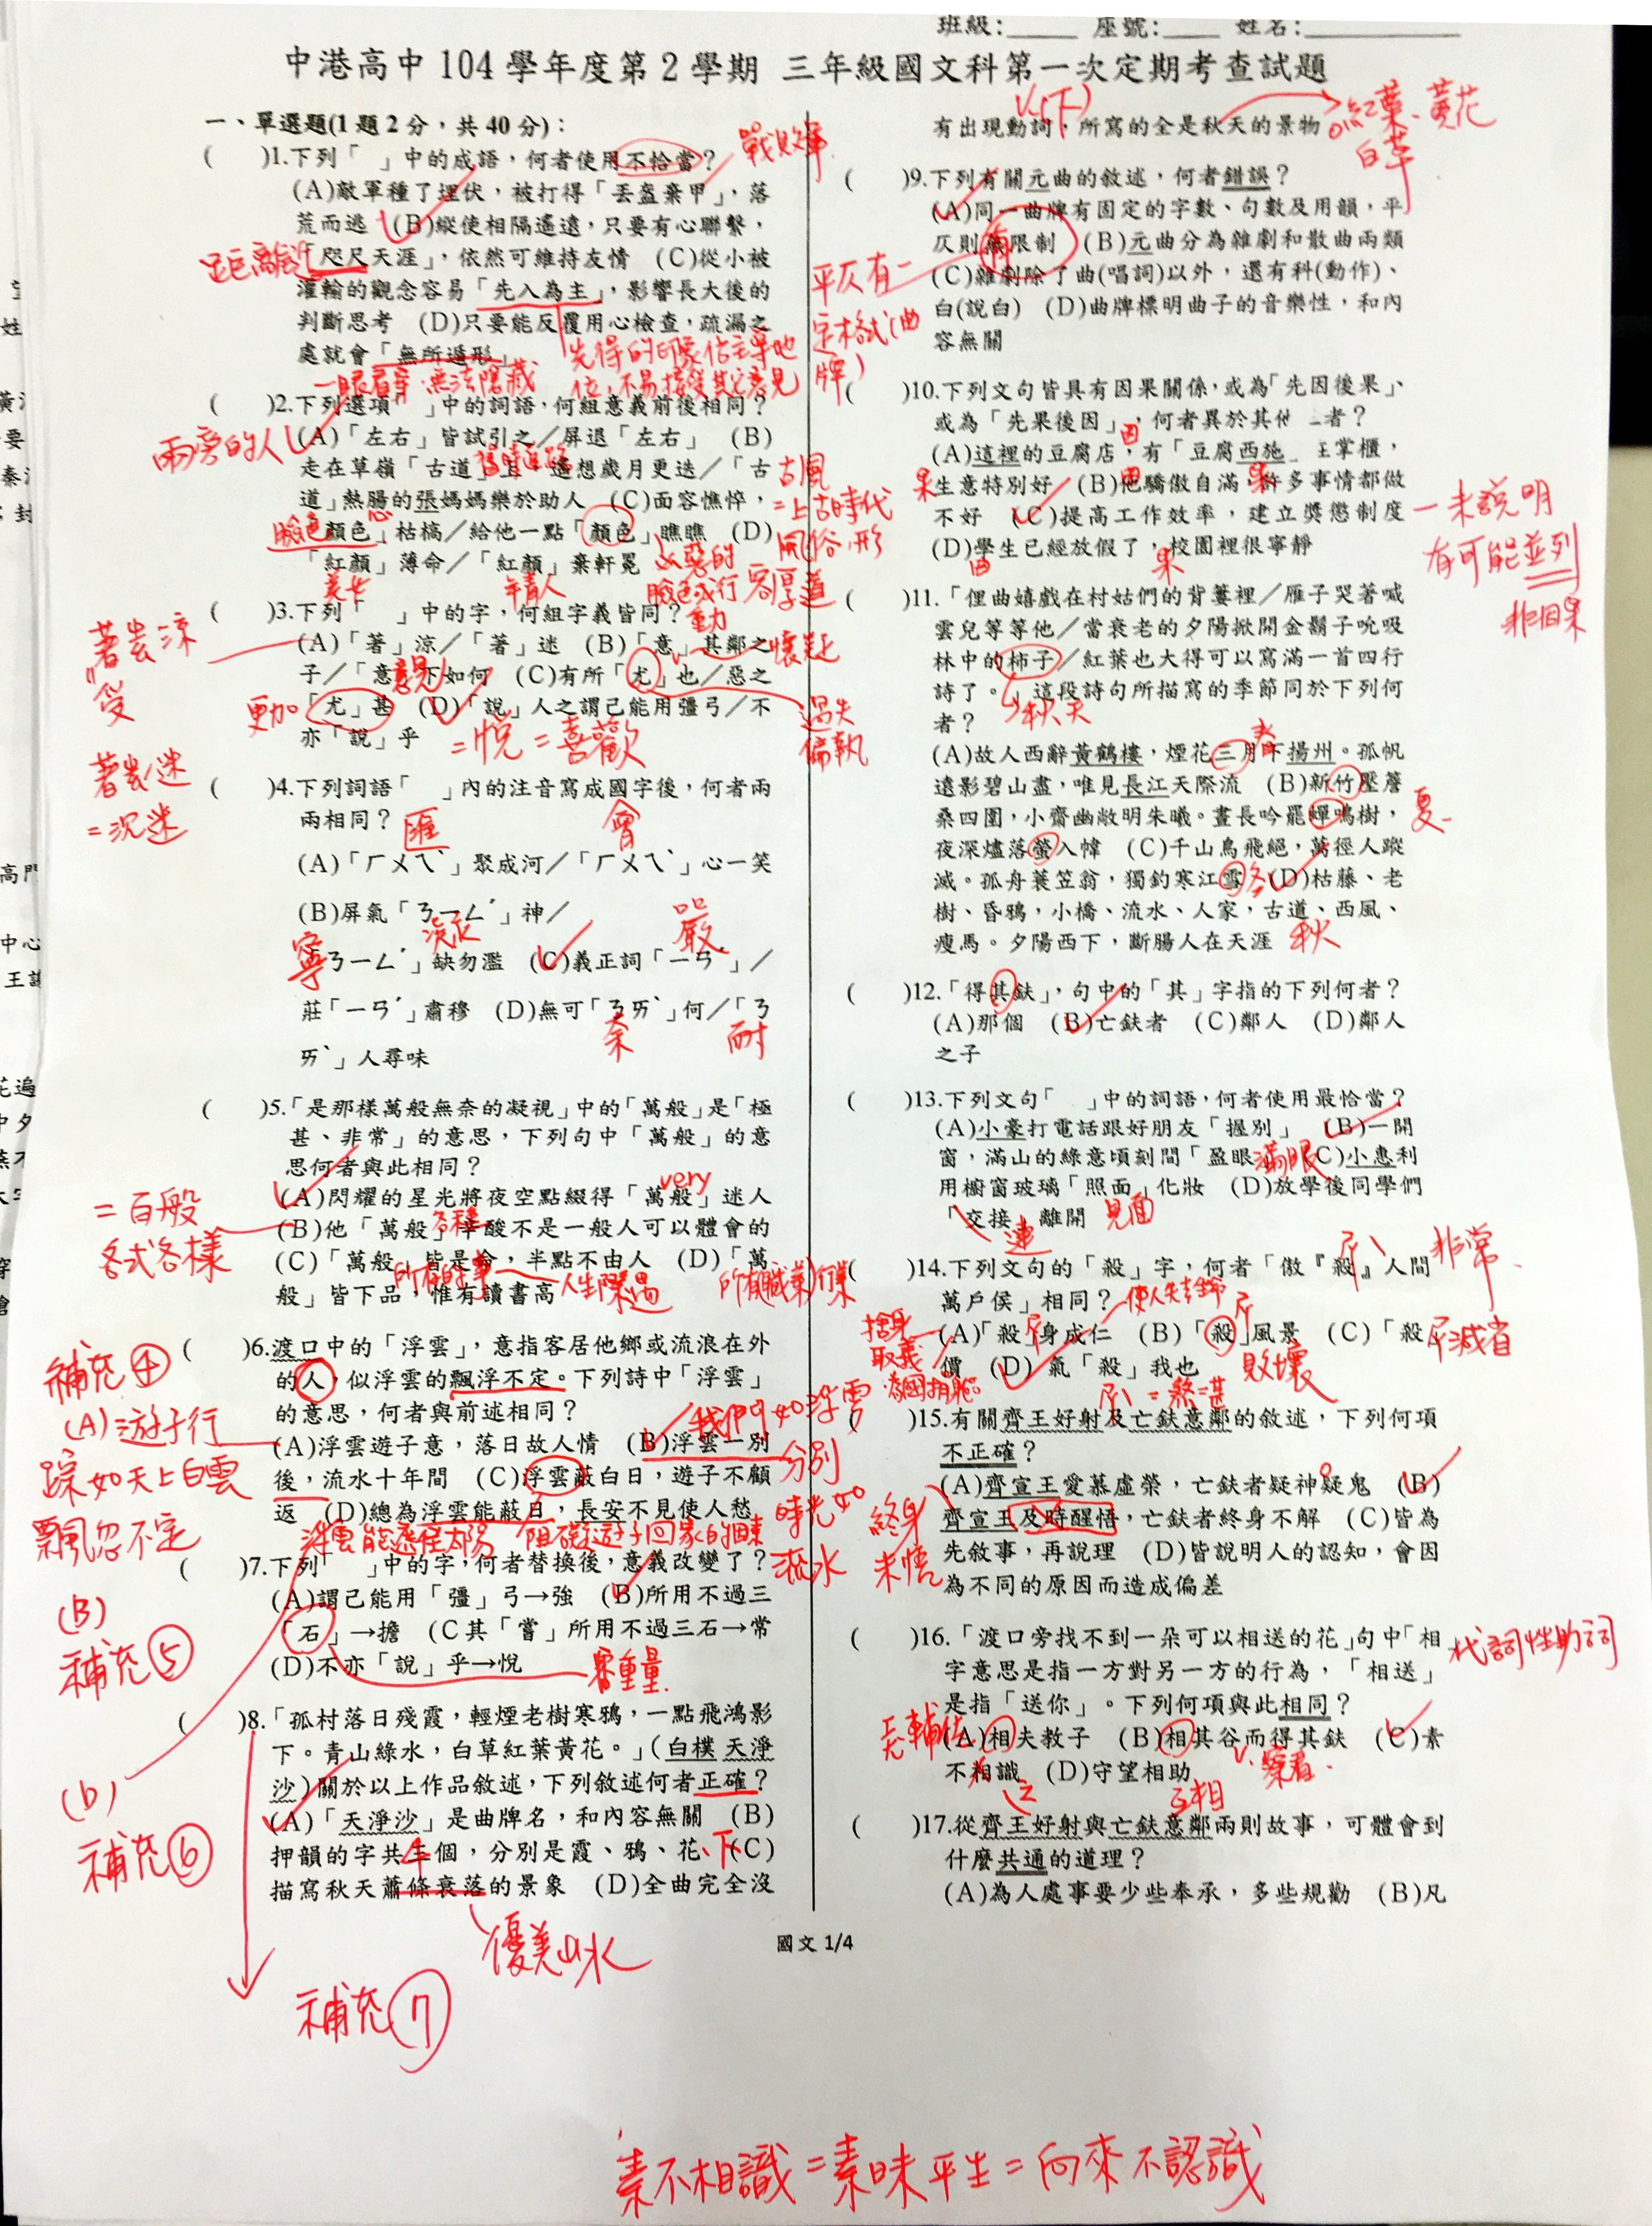 班級:_____ 座號:____ 姓名:___________
中港高中 104 學年度第 2 學期 三年級國文科第一次定期考查試題
一、單選題(1 題 2 分，共 40 分)：
( )1.下列「 」中的成語，何者使用不恰當？
戰敗軍
(A)敵軍種了埋伏，被打得「丟盔棄甲」，落
荒而逃 (B)縱使相隔遙遠，只要有心聯繫，
「咫尺天涯」，依然可維持友情 (C)從小被
灌輸的觀念容易「先入為主」，影響長大後的
判斷思考 (D)只要能反覆用心檢查，疏漏之
處就會「無所遁形」
先得的印象佔主導地
位，不易接受其它意見
一眼看穿，無法隱藏
( )2.下列選項「 」中的詞語，何組意義前後相同？
兩旁的人
(A)「左右」皆試引之／屏退「左右」 (B)
走在草嶺「古道」上，遙想歲月更迭／「古
道」熱腸的張媽媽樂於助人 (C)面容憔悴，
「顏色」枯槁／給他一點「顏色」瞧瞧 (D)
「紅顏」薄命／「紅顏」棄軒冕
臉色
古風
=上古時代
風俗、形
容厚道
兇惡的
臉色或行
動
美女
年青人
( )3.下列「 」中的字，何組字義皆同？
(A)「著」涼／「著」迷 (B)「意」其鄰之
子／「意」下如何 (C)有所「尤」也／惡之
「尤」甚 (D)「說」人之謂己能用彊弓／不
亦「說」乎
意見
懷疑
更加
過失
偏執
=悅=喜歡
受
=沉迷
( )4.下列詞語「 」內的注音寫成國字後，何者兩
兩相同？
匯
會
(A)「ㄏㄨㄟˋ」聚成河／「ㄏㄨㄟˋ」心一笑
(B)屏氣「ㄋㄧㄥˊ」神／
「ㄋㄧㄥˊ」缺勿濫 (C)義正詞「ㄧㄢˊ」／
莊「ㄧㄢˊ」肅穆 (D)無可「ㄋㄞˋ」何／「ㄋ
ㄞˋ」人尋味
寧
嚴
奈
耐
( )5.「是那樣萬般無奈的凝視」中的「萬般」是「極
甚、非常」的意思，下列句中「萬般」的意
思何者與此相同？
very
(A)閃耀的星光將夜空點綴得「萬般」迷人
(B)他「萬般」辛酸不是一般人可以體會的
(C)「萬般」皆是命，半點不由人 (D)「萬
般」皆下品，惟有讀書高
=百般
各式各樣
各種
所有的事
人生際遇
所有職業行業
( )6.渡口中的「浮雲」，意指客居他鄉或流浪在外
的人，似浮雲的飄浮不定。下列詩中「浮雲」
的意思，何者與前述相同？
(A)浮雲遊子意，落日故人情 (B)浮雲一別
後，流水十年間 (C)浮雲蔽白日，遊子不顧
返 (D)總為浮雲能蔽日，長安不見使人愁
補充④
(A)遊子行
蹤如天上白雲
飄忽不定
我們如浮雲
分別
時光如
流水
浮雲能遮住太陽
阻礙遊子回家的因素
( )7.下列「 」中的字，何者替換後，意義改變了？
(A)謂己能用「彊」弓→強 (B)所用不過三
「石」→擔 (C其「嘗」所用不過三石→常
(D)不亦「說」乎→悅
重量
(B)
補充⑤
( )8.「孤村落日殘霞，輕煙老樹寒鴉，一點飛鴻影
下。青山綠水，白草紅葉黃花。」(白樸 天淨
沙)關於以上作品敘述，下列敘述何者正確？
(A)「天淨沙」是曲牌名，和內容無關 (B)
押韻的字共三個，分別是霞、鴉、花 (C)
描寫秋天蕭條衰落的景象 (D)全曲完全沒
4
、下
(D)
補充⑥
優美山水
補充⑦
有出現動詞，所寫的全是秋天的景物
V.(下)
紅葉、黃花
白草
( )9.下列有關元曲的敘述，何者錯誤？
(A)同一曲牌有固定的字數、句數及用韻，平
仄則無限制 (B)元曲分為雜劇和散曲兩類
(C)雜劇除了曲(唱詞)以外，還有科(動作)、
白(說白) (D)曲牌標明曲子的音樂性，和內
容無關
有
平仄有一
定格式(曲
牌)
( )10.下列文句皆具有因果關係，或為「先因後果」、
或為「先果後因」，何者異於其他 者？
(A)這裡的豆腐店，有「豆腐西施」 掌櫃，
生意特別好 (B)他驕傲自滿，許多事情都做
不好 (C)提高工作效率，建立獎懲制度
(D)學生已經放假了，校園裡很寧靜
因
果
因
果
因
果
未說明
有可能並列
非因果
( )11.「俚曲嬉戲在村姑們的背簍裡／雁子哭著喊
雲兒等等他／當衰老的夕陽掀開金鬍子吮吸
林中的柿子／紅葉也大得可以寫滿一首四行
詩了。」這段詩句所描寫的季節同於下列何
者？
秋天
(A)故人西辭黃鶴樓，煙花三月下揚州。孤帆
遠影碧山盡，唯見長江天際流 (B)新竹壓簷
桑四圍，小齋幽敞明朱曦。晝長吟罷蟬鳴樹，
夜深燼落螢入幃 (C)千山鳥飛絕，萬徑人蹤
滅。孤舟蓑笠翁，獨釣寒江雪 (D)枯藤、老
樹、昏鴉，小橋、流水、人家，古道、西風、
瘦馬。夕陽西下，斷腸人在天涯
春
夏
冬
秋
( )12.「得其鈇」，句中的「其」字指的下列何者？
(A)那個 (B)亡鈇者 (C)鄰人 (D)鄰人
之子
( )13.下列文句「 」中的詞語，何者使用最恰當？
(A)小豪打電話跟好朋友「握別」 (B)一開
窗，滿山的綠意頃刻間「盈眼」 (C)小惠利
用櫥窗玻璃「照面」化妝 (D)放學後同學們
「交接」離開
滿眼
見面
連
( )14.下列文句的「殺」字，何者「傲『殺』人間
萬戶侯」相同？
(A)「殺」身成仁 (B)「殺」風景 (C)「殺」
價 (D) 氣「殺」我也
非常
捨身
取義
敗壞
減省
=煞=甚
( )15.有關齊王好射及亡鈇意鄰的敘述，下列何項
不正確？
(A)齊宣王愛慕虛榮，亡鈇者疑神疑鬼 (B)
齊宣王及時醒悟，亡鈇者終身不解 (C)皆為
先敘事，再說理 (D)皆說明人的認知，會因
為不同的原因而造成偏差
終身
未悟
( )16.「渡口旁找不到一朵可以相送的花」句中「相
字意思是指一方對另一方的行為，「相送」
是指「送你」。下列何項與此相同？
代詞性助詞
(A)相夫教子 (B)相其谷而得其鈇 (C)素
不相識 (D)守望相助
輔佐
V.察看.
互相
( )17.從齊王好射與亡鈇意鄰兩則故事，可體會到
什麼共通的道理？
(A)為人處事要少些奉承，多些規勸 (B)凡
國文 1/4
素不相識=素昧平生=向來不認識